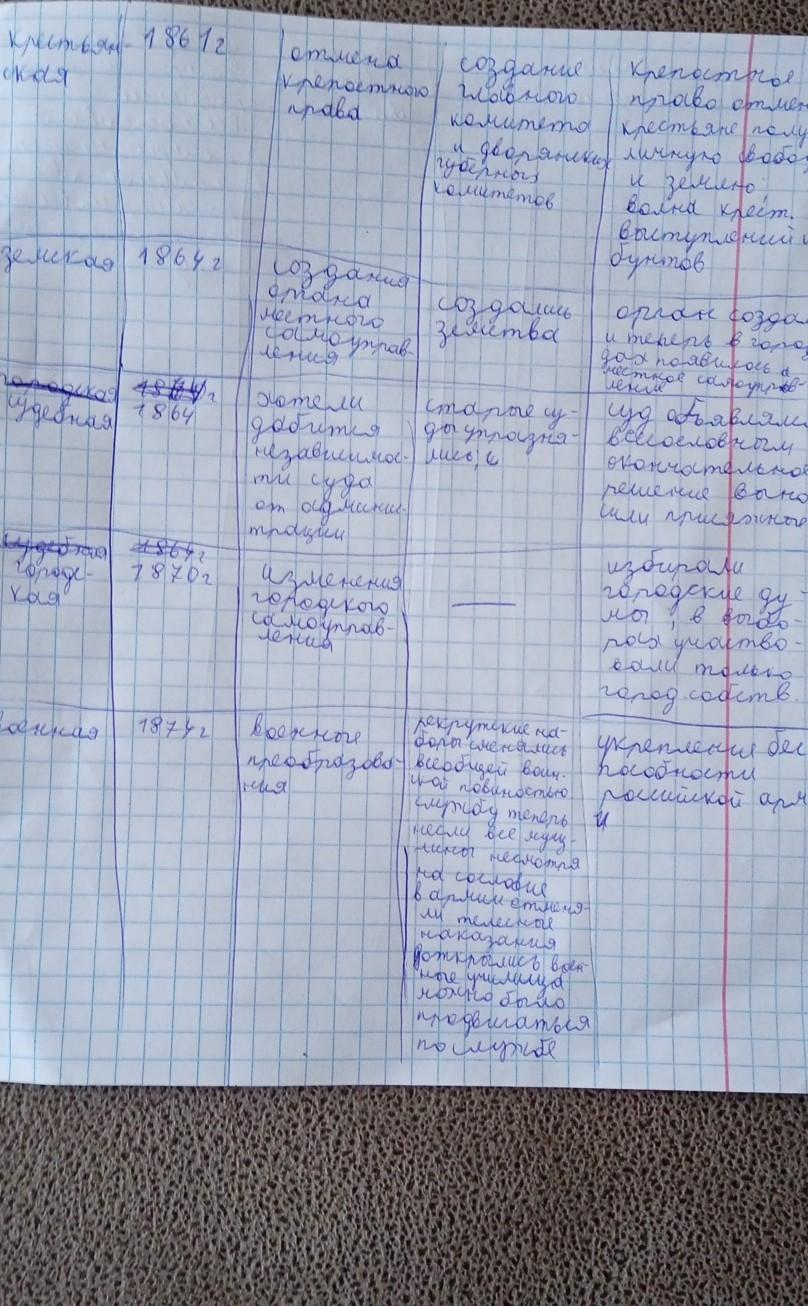 крестьян-
ская
1861г
отмена
крепостного
права
создание
главного
комитета
и дворянских
губерных
комитетов
крепостное
право отмен
крестьяне полу
личную свобо
и землю;
волна крест.
выступлений и
бунтов
земская
1864г
создания
органа
местного
самоуправ-
ления
создались
земства
орган созда
и теперь в город
дах появилось
местное самоуправ-
ление
городская
судебная
1864г
1864
хотели
добится
независимос-
ти суда
от админис-
трации
старые су-
ды упраздня-
лись, и
суд объявлялс
всесословным
окончательное
решение выно
сили присяжные
судебная
городс-
кая
1864г
1870г
изменения
городского
самоуправ-
ления
избирали
городские ду-
мы, в выбо-
рах участво-
вали только
город. собств.
военная
1874г
военные
преобразова-
ния
рекрутские на-
боры сменялись
всеобщей воин.
ской повиностью
службу теперь
несли все муж-
чины несмотря
на сословие
в армии отменя-
ли телесные
наказания
открылись воен-
ные училища
можно было
продвигаться
по службе
укрепления бес
пособности
российской арм
и